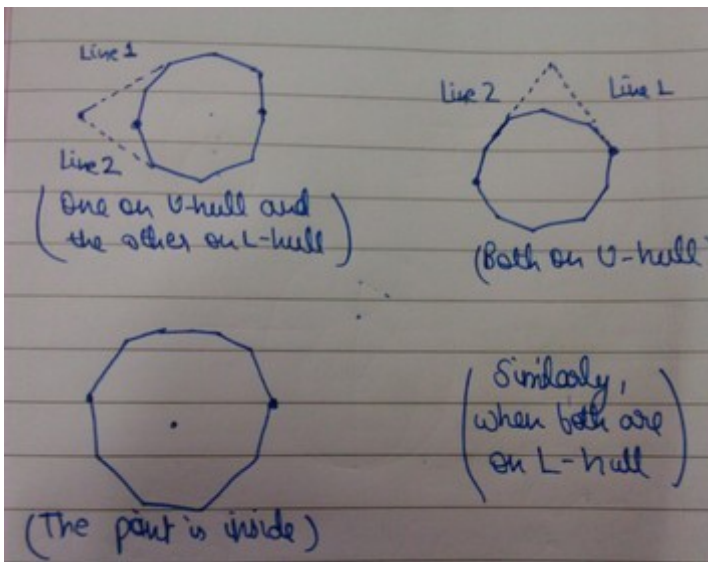 Line 1
Line 2
(One on U-hull and
the other on L-hull)
Line 2
Line 1
(Both on U-hull
(The point is inside)
(Similarly,
when both are
on L-hull)